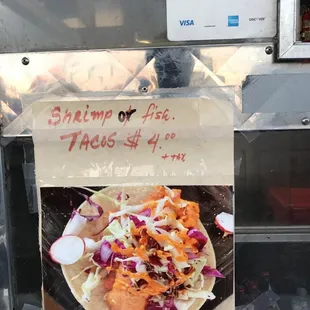 VISA
Shrimp or fish.
TACOS $4.00
++tax